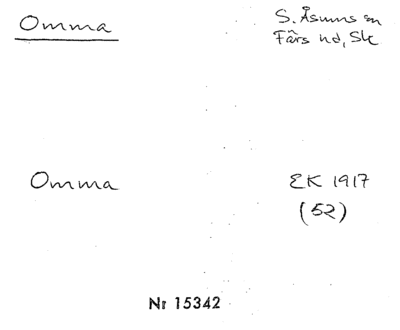 Omma
S. Åsums sn
Färs hd, Sk
Omma
EK 1917
(52)
Nr 15342